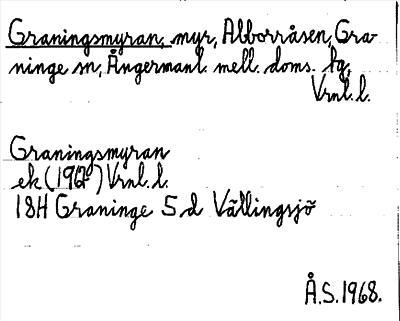 Graningsmyran, myr, Alborråsen, Gra-
ninge sn, Ångermanl. mell. doms. tg,
Vrnl. l.
Graningsmyran
ek (1967) Vrnl. l.
18H Graninge 5 d Vällingsjö
Å.S. 1968.